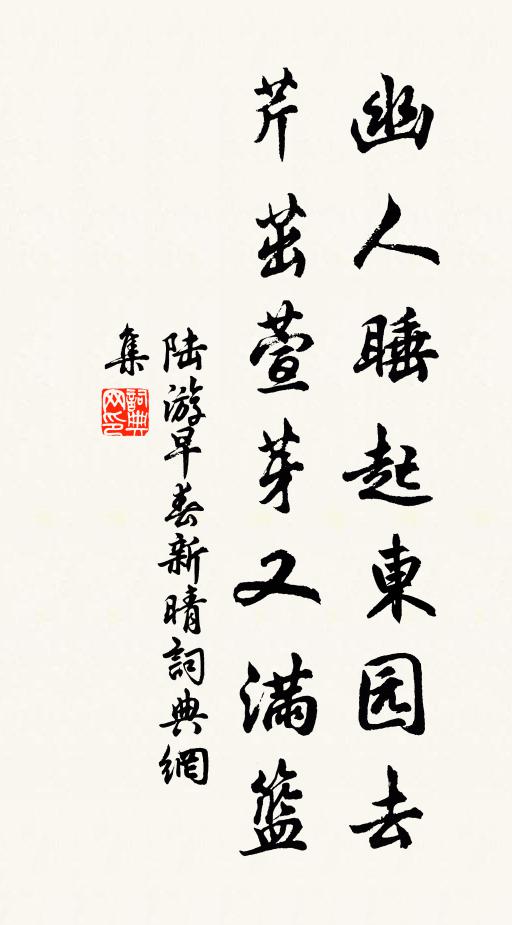 幽人睡起東园去
芹茁萱芽又滿籃
陸游早春新晴詞典網
集
詞典
网印